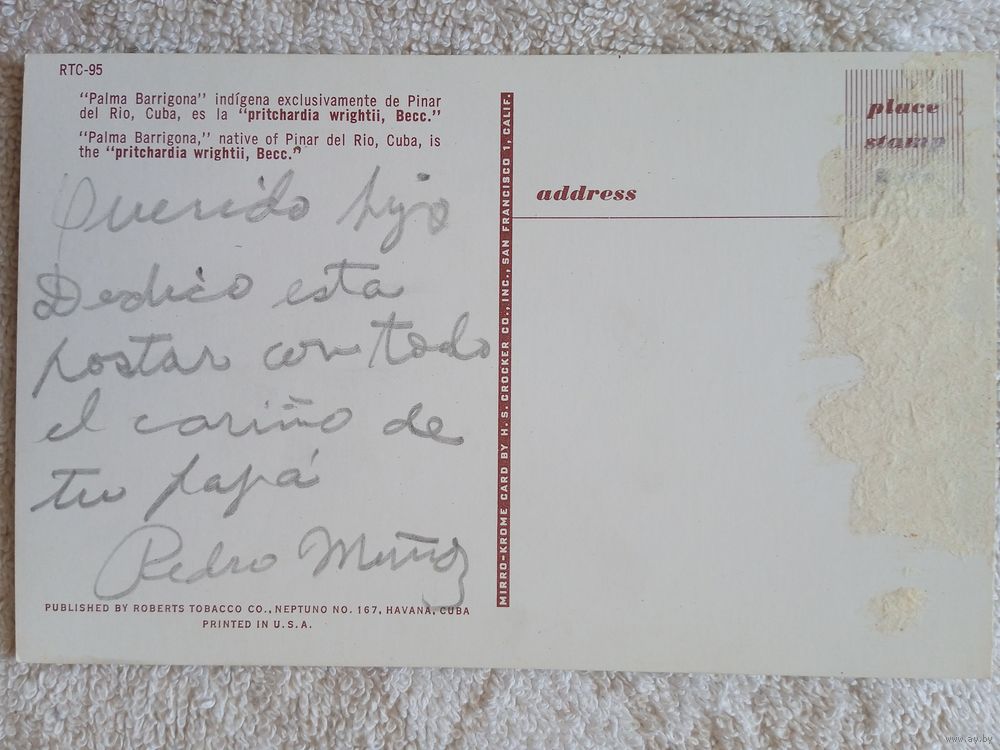 RTC-95
"Palma Barrigona" indígena exclusivamente de Pinar
del Rio, Cuba, es la "pritchardia wrightii, Becc."
"Palma Barrigona," native of Pinar del Rio, Cuba, is
the "pritchardia wrightii, Becc."
Querido hijo
Dedico esta
postar con todo
el cariño de
tu papá
Pedro Muñoz
PUBLISHED BY ROBERTS TOBACCO CO., NEPTUNO NO. 167, HAVANA, CUBA
PRINTED IN U.S.A.
MIRRO-KROME CARD BY H. S. CROCKER CO., INC., SAN FRANCISCO 1, CALIF.
place
stamp
address
www.ay.by